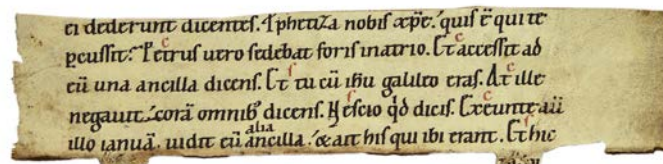 ei dederunt dicentes. Prophetiza nobis xp̄e. quis ē qui te
percussit. Petrus uero sedebat foris in atrio. Et accessit ad
eū una ancilla dicens. Et tu cū ihu galileo eras. At ille
negauit corā omnib; dicens. Nescio qd dicis. Exeunte aū
illo ianuā. uidit eū alia ancilla. & ait his qui ibi erant. Et hic